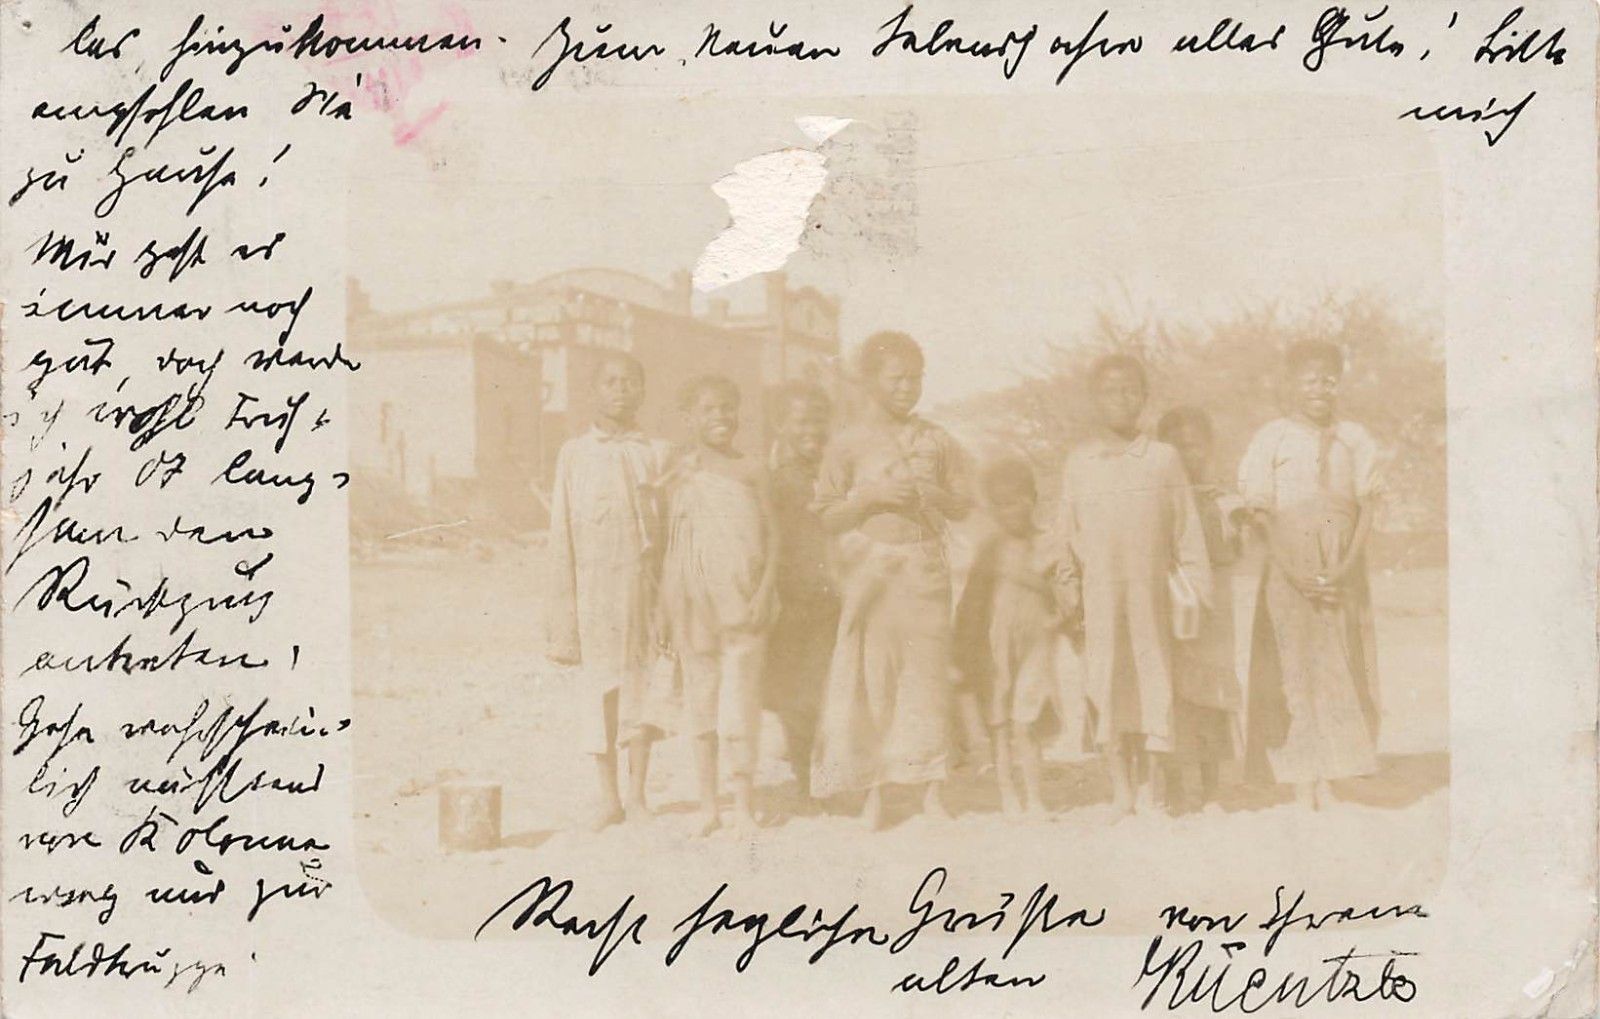 las hinzukommen. Zum neuen Lebensjahre alles Gute! Bitte
mich
empfehlen Sie
zu Hause!
Mir geht es
immer noch
gut, doch werde
ich wohl Früh-
jahr 07 lang-
sam den
Rückzug
antreten.
Gehe wahrschein-
lich nächstens
von Kolonne
weg und zur
Feldtruppe.
Recht herzliche Grüße von Ihrem
alten